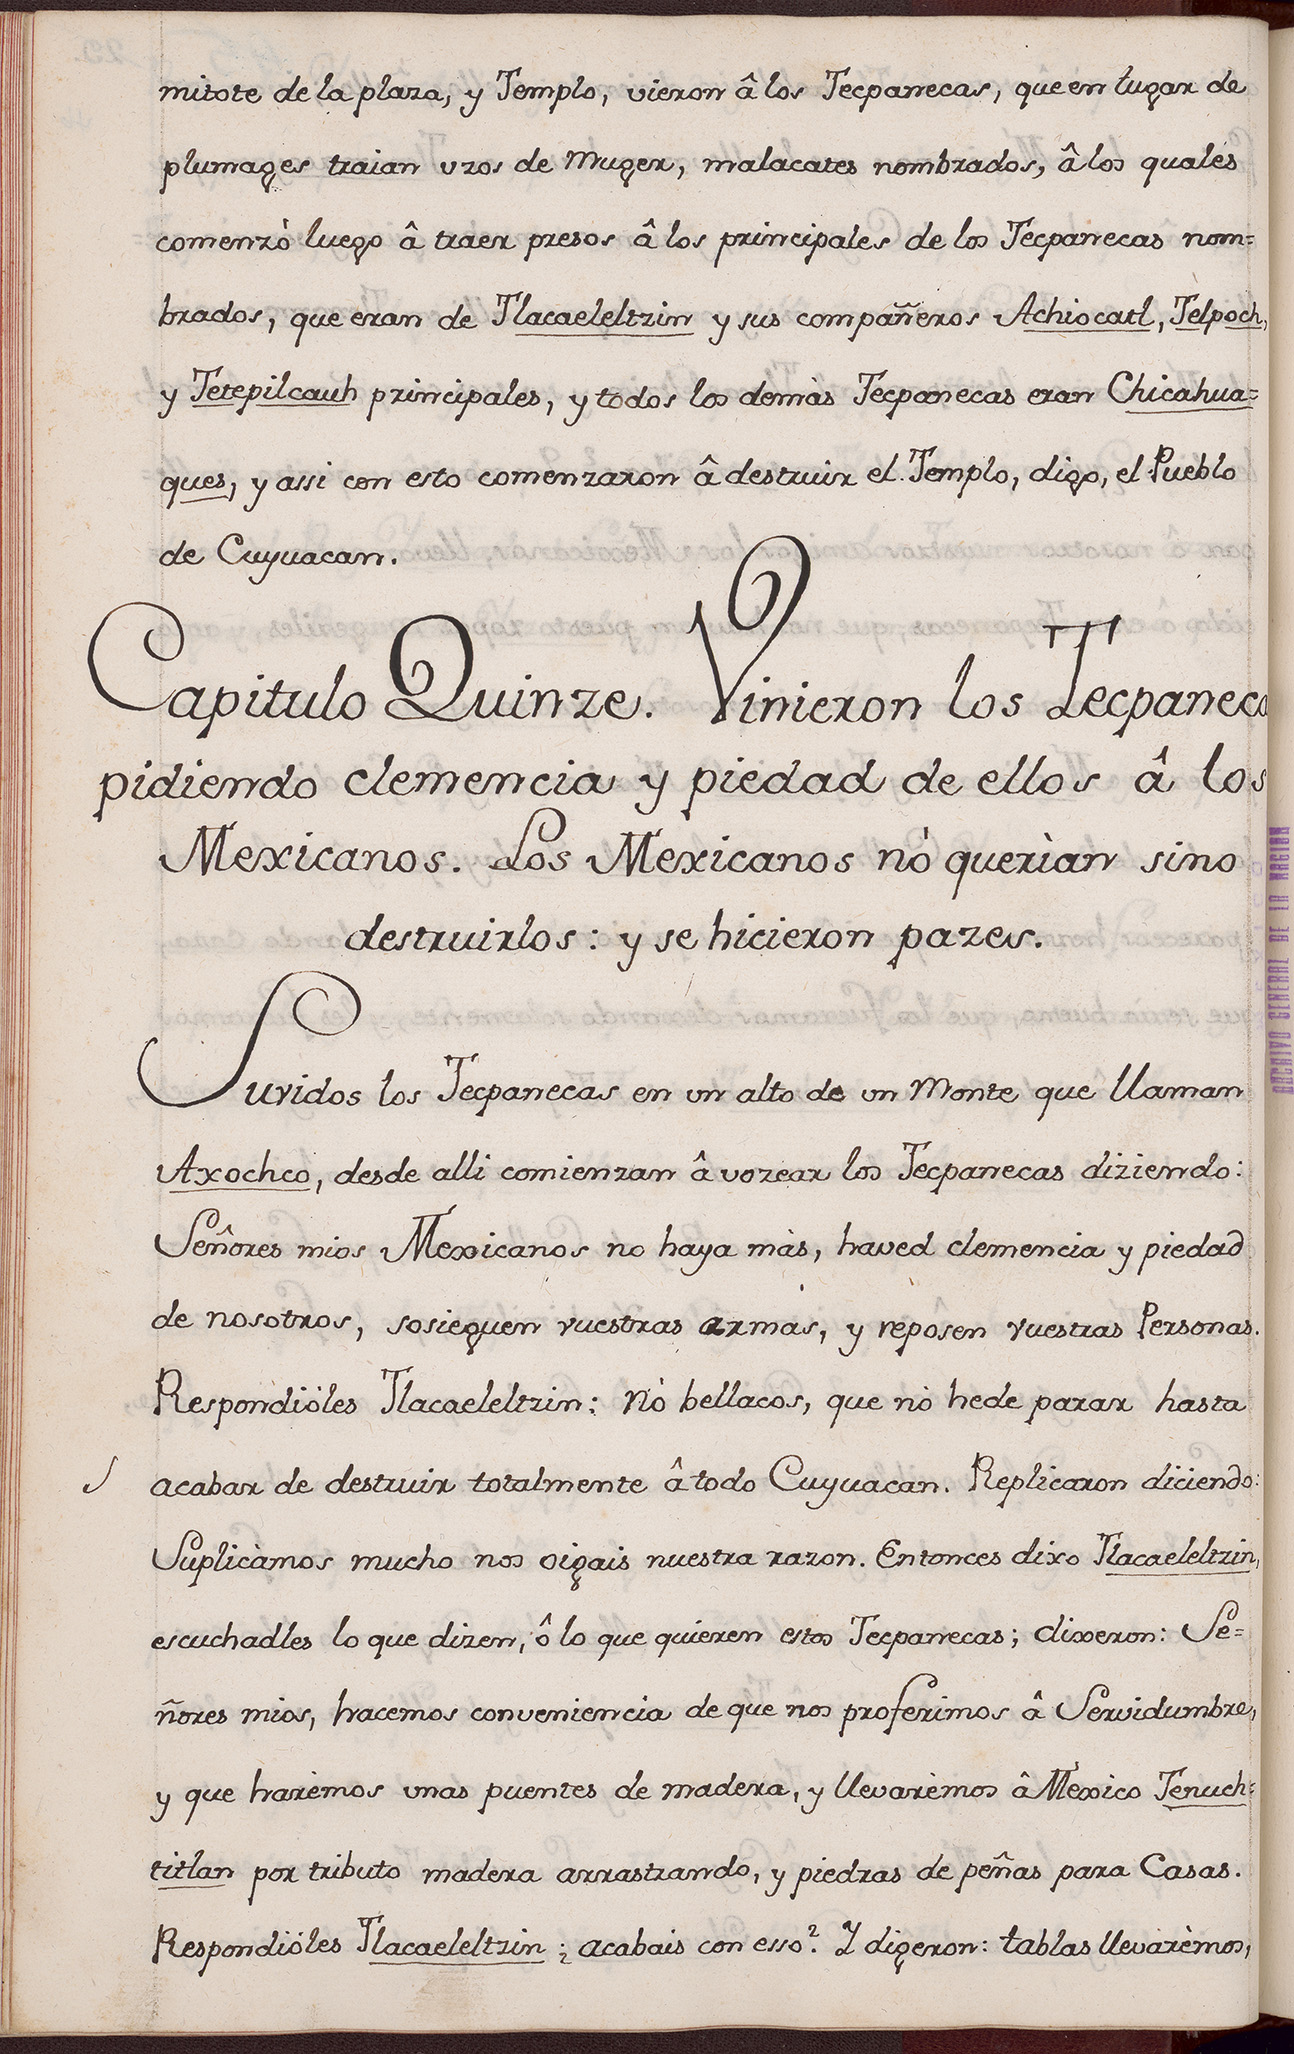 mitote de la plaza, y Templo, vieron â los Tecpanecas, que en lugar de
plumages traian vzos de Muger, malacates nombrados, â los quales
comenzò luego â traer presos â los principales de los Tecpanecas nom=
brados, que eran de Tlacaeleltzin y sus compañeros Achiocatl, Telpoch,
y Tetepilcauh principales, y todos los demàs Tecpanecas eran Chicahua=
ques, y assi con esto comenzaron â destruir el Templo, digo, el Pueblo
de Cuyuacan.
Capitulo Quinze. Vinieron los Tecpaneca
pidiendo clemencia y piedad de ellos â los
Mexicanos. Los Mexicanos nò querian sino
destruirlos: y se hicieron pazes.
Suvidos los Tecpanecas en vn alto de vn Monte que llaman
Axochco, desde alli comienzan â vozear los Tecpanecas diziendo:
Señores mios Mexicanos no haya màs, haved clemencia y piedad
de nosotros, sosieguen vuestras armas, y reposen vuestras Personas.
Respondiòles Tlacaeleltzin: Nò bellacos, que nò hede parar hasta
acabar de destruir totalmente â todo Cuyuacan. Replicaron diciendo:
Suplicàmos mucho nos oigais nuestra razon. Entonces dixo Tlacaeleltzin,
escuchadles lo que dizen, ô lo que quieren estos Tecpanecas; dixeron: Se=
ñores mios, hacemos conveniencia de que nos proferimos â Servidumbre,
y que harèmos vnas puentes de madera, y llevarèmos â Mexico Tenuch=
titlan por tributo madera arrastrando, y piedras de peñas para Casas.
Respondiòles Tlacaeleltzin; acabais con esso? Y digeron: tablas llevarèmos,
ARCHIVO GENERAL DE LA NACION